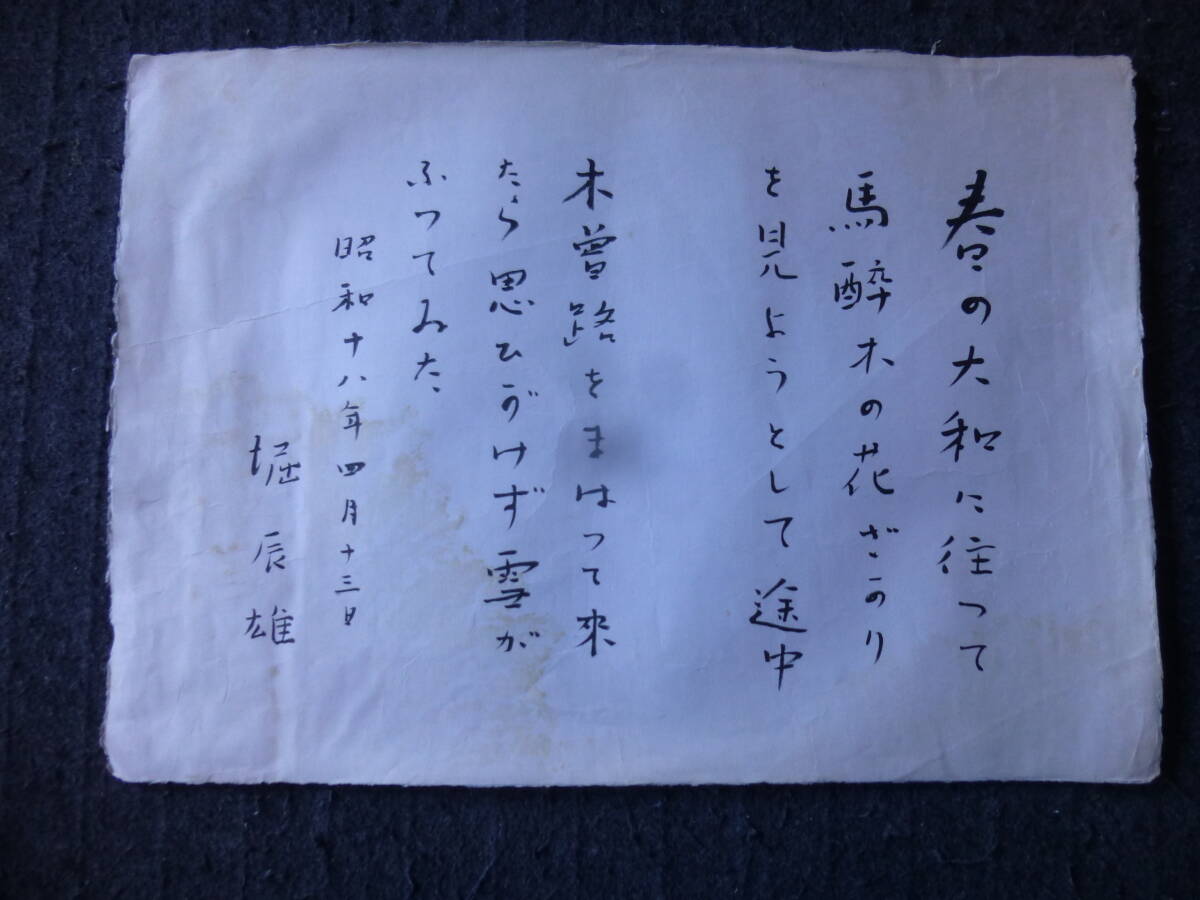 春の大和に往つて
馬酔木の花ざかり
を見ようとして途中
木曽路をまはつて來
たら思ひがけず雪が
ふつてゐた
昭和十八年四月十三日
堀辰雄